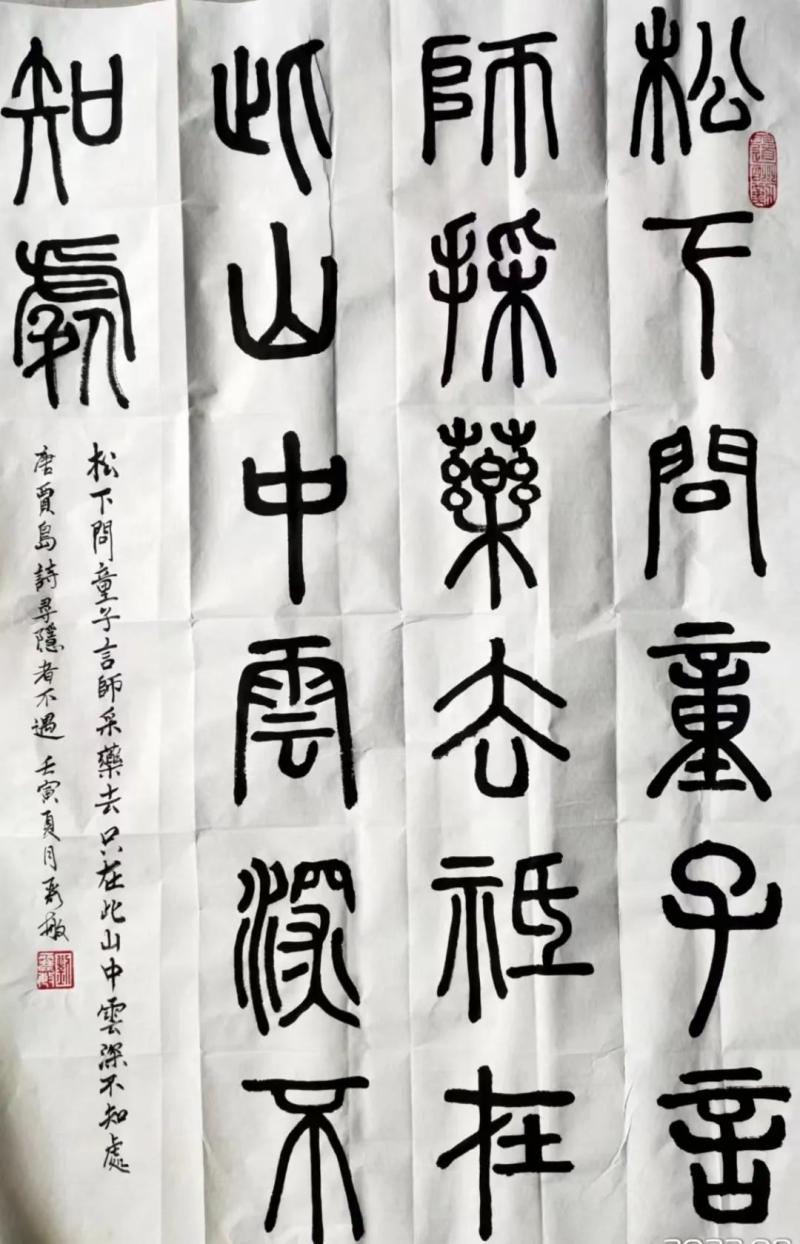 松下問童子言
師採藥去祗在
此山中雲深不
知處
松下問童子言師采藥去只在此山中雲深不知處
唐賈島詩尋隱者不遇 壬寅夏月 敏